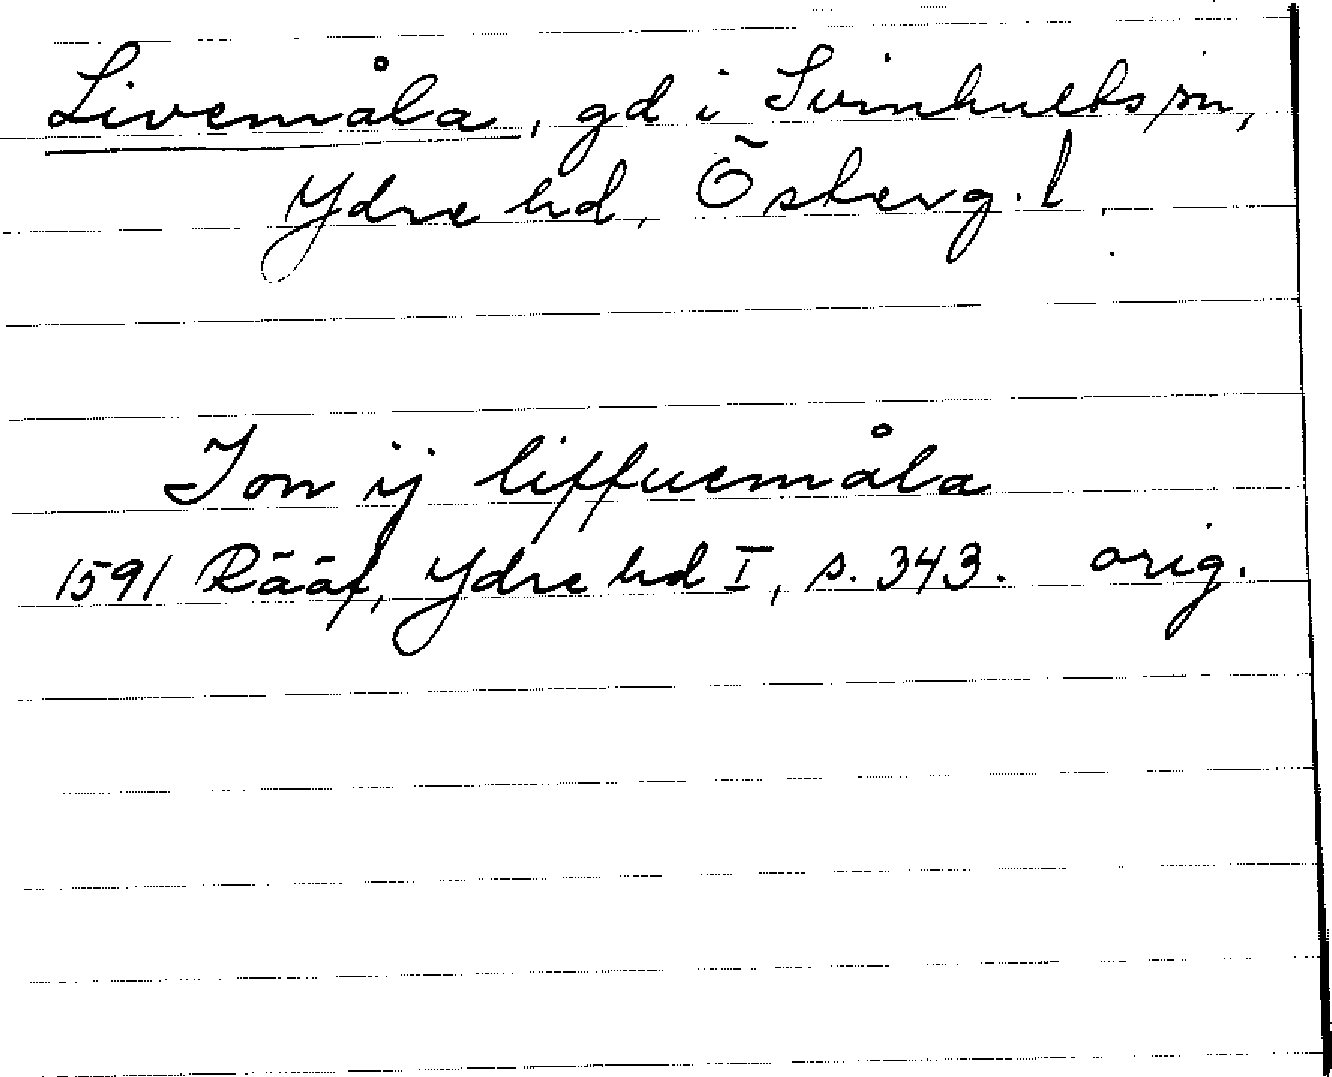 Livemåla, gd i Svinhults sn,
Ydre hd, Österg. l
Jon ij liffuemåla
1591 Rääf, Ydre hd I, s. 343. orig.